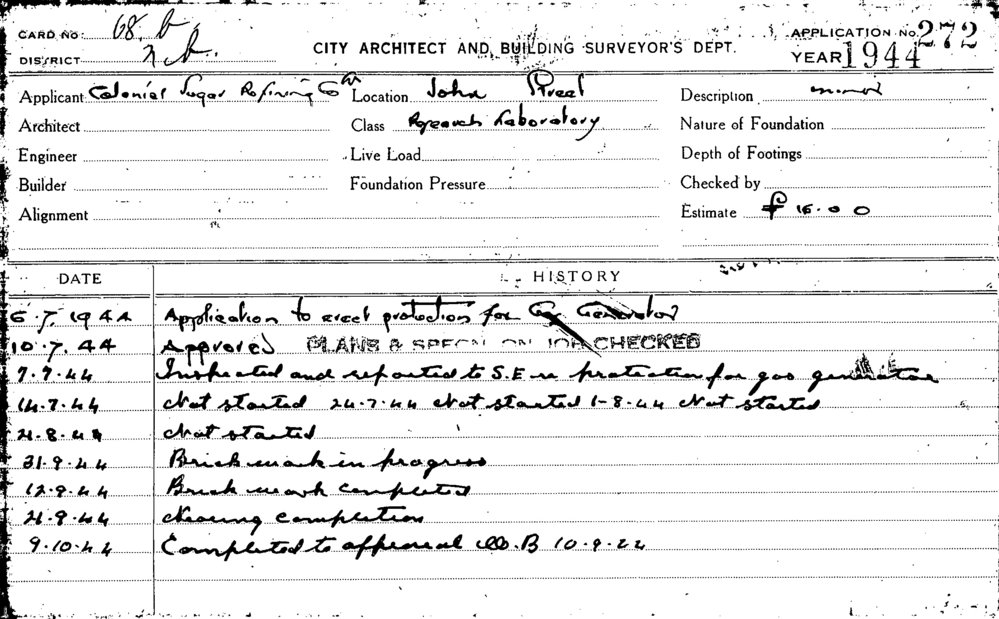 CARD NO: 68. b
DISTRICT
CITY ARCHITECT AND BUILDING SURVEYOR'S DEPT.
APPLICATION NO. 272
YEAR 1944
Applicant Colonial Sugar Refining Co Location John Street Description minor
Architect Class Research Laboratory Nature of Foundation
Engineer Live Load Depth of Footings
Builder Foundation Pressure Checked by
Alignment Estimate £ 15.0 0
DATE HISTORY
6.7.1944 Application to erect protection for Gas Generator
10.7.44 Approved PLANS & SPECN ON JOB CHECKED
7.7.44 Inspected and reported to S.E re protection for gas generator
14.7.44 Not started 24.7.44 Not started 1-8-44 Not started
21.8.44 Not started
31.9.44 Brick work in progress
12.9.44 Brick work completed
21.9.44 Nearing completion
9.10.44 Completed to approval W.B 10.9.44